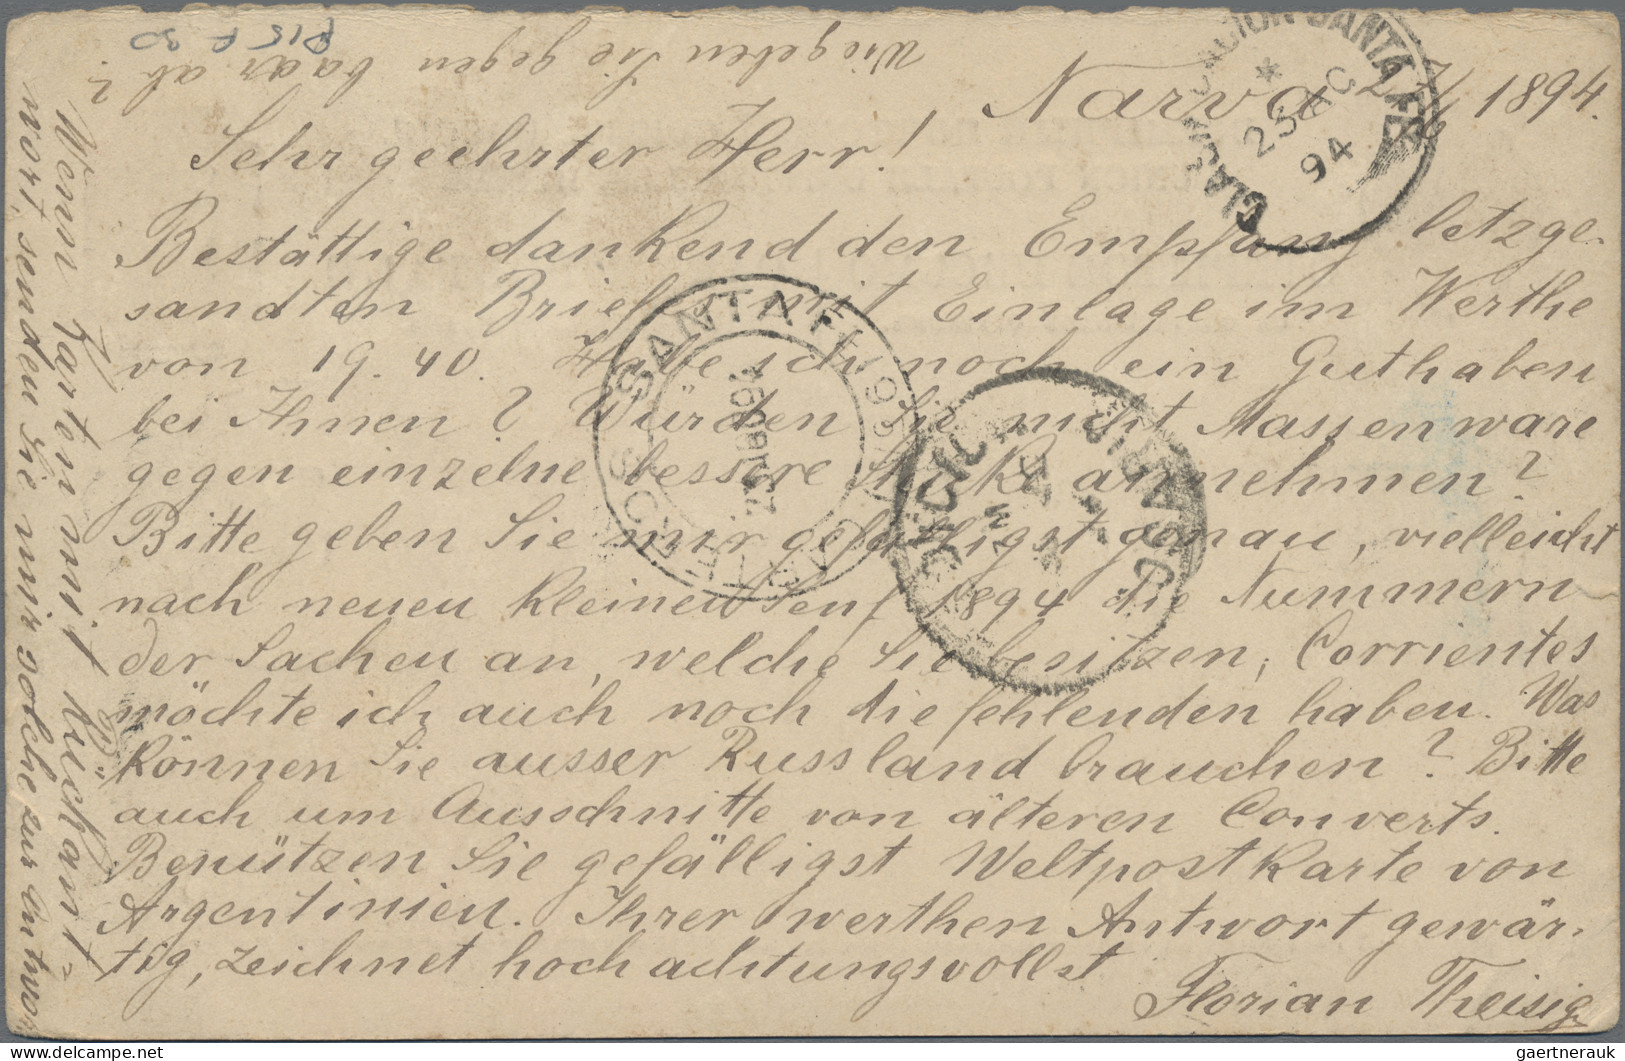 P15 F 30
Wie geben Sie gegen baar ab?
Narva 1894.
Sehr geehrter Herr!
Bestättige dankend den Empfang letzge-
sandten Briefes mit Einlage im Werthe
von 19.40. Habe ich noch ein Guthaben
bei Ihnen? Würden Sie nicht Massenware
gegen einzelne bessere Stücke annehmen?
Bitte geben Sie mir gefälligst genau, vielleicht
nach neuen kleinen Senf 1894 die Nummern
der Sachen an, welche Sie besitzen, Corrientes
möchte ich auch noch die fehlenden haben. Was
können Sie ausser Russland brauchen? Bitte
auch um Ausschnitte von älteren Converts.
Benützen Sie gefälligst Weltpostkarte von
Argentinien. Ihrer werthen Antwort gewär-
tig, zeichnet hochachtungsvollst
Florian Theisig
Wenn Karten mit Rückant-
wort, senden Sie mir solche zur Antwort
SANTA FE
25 AG
94
SANTA FE
gaertnerauk